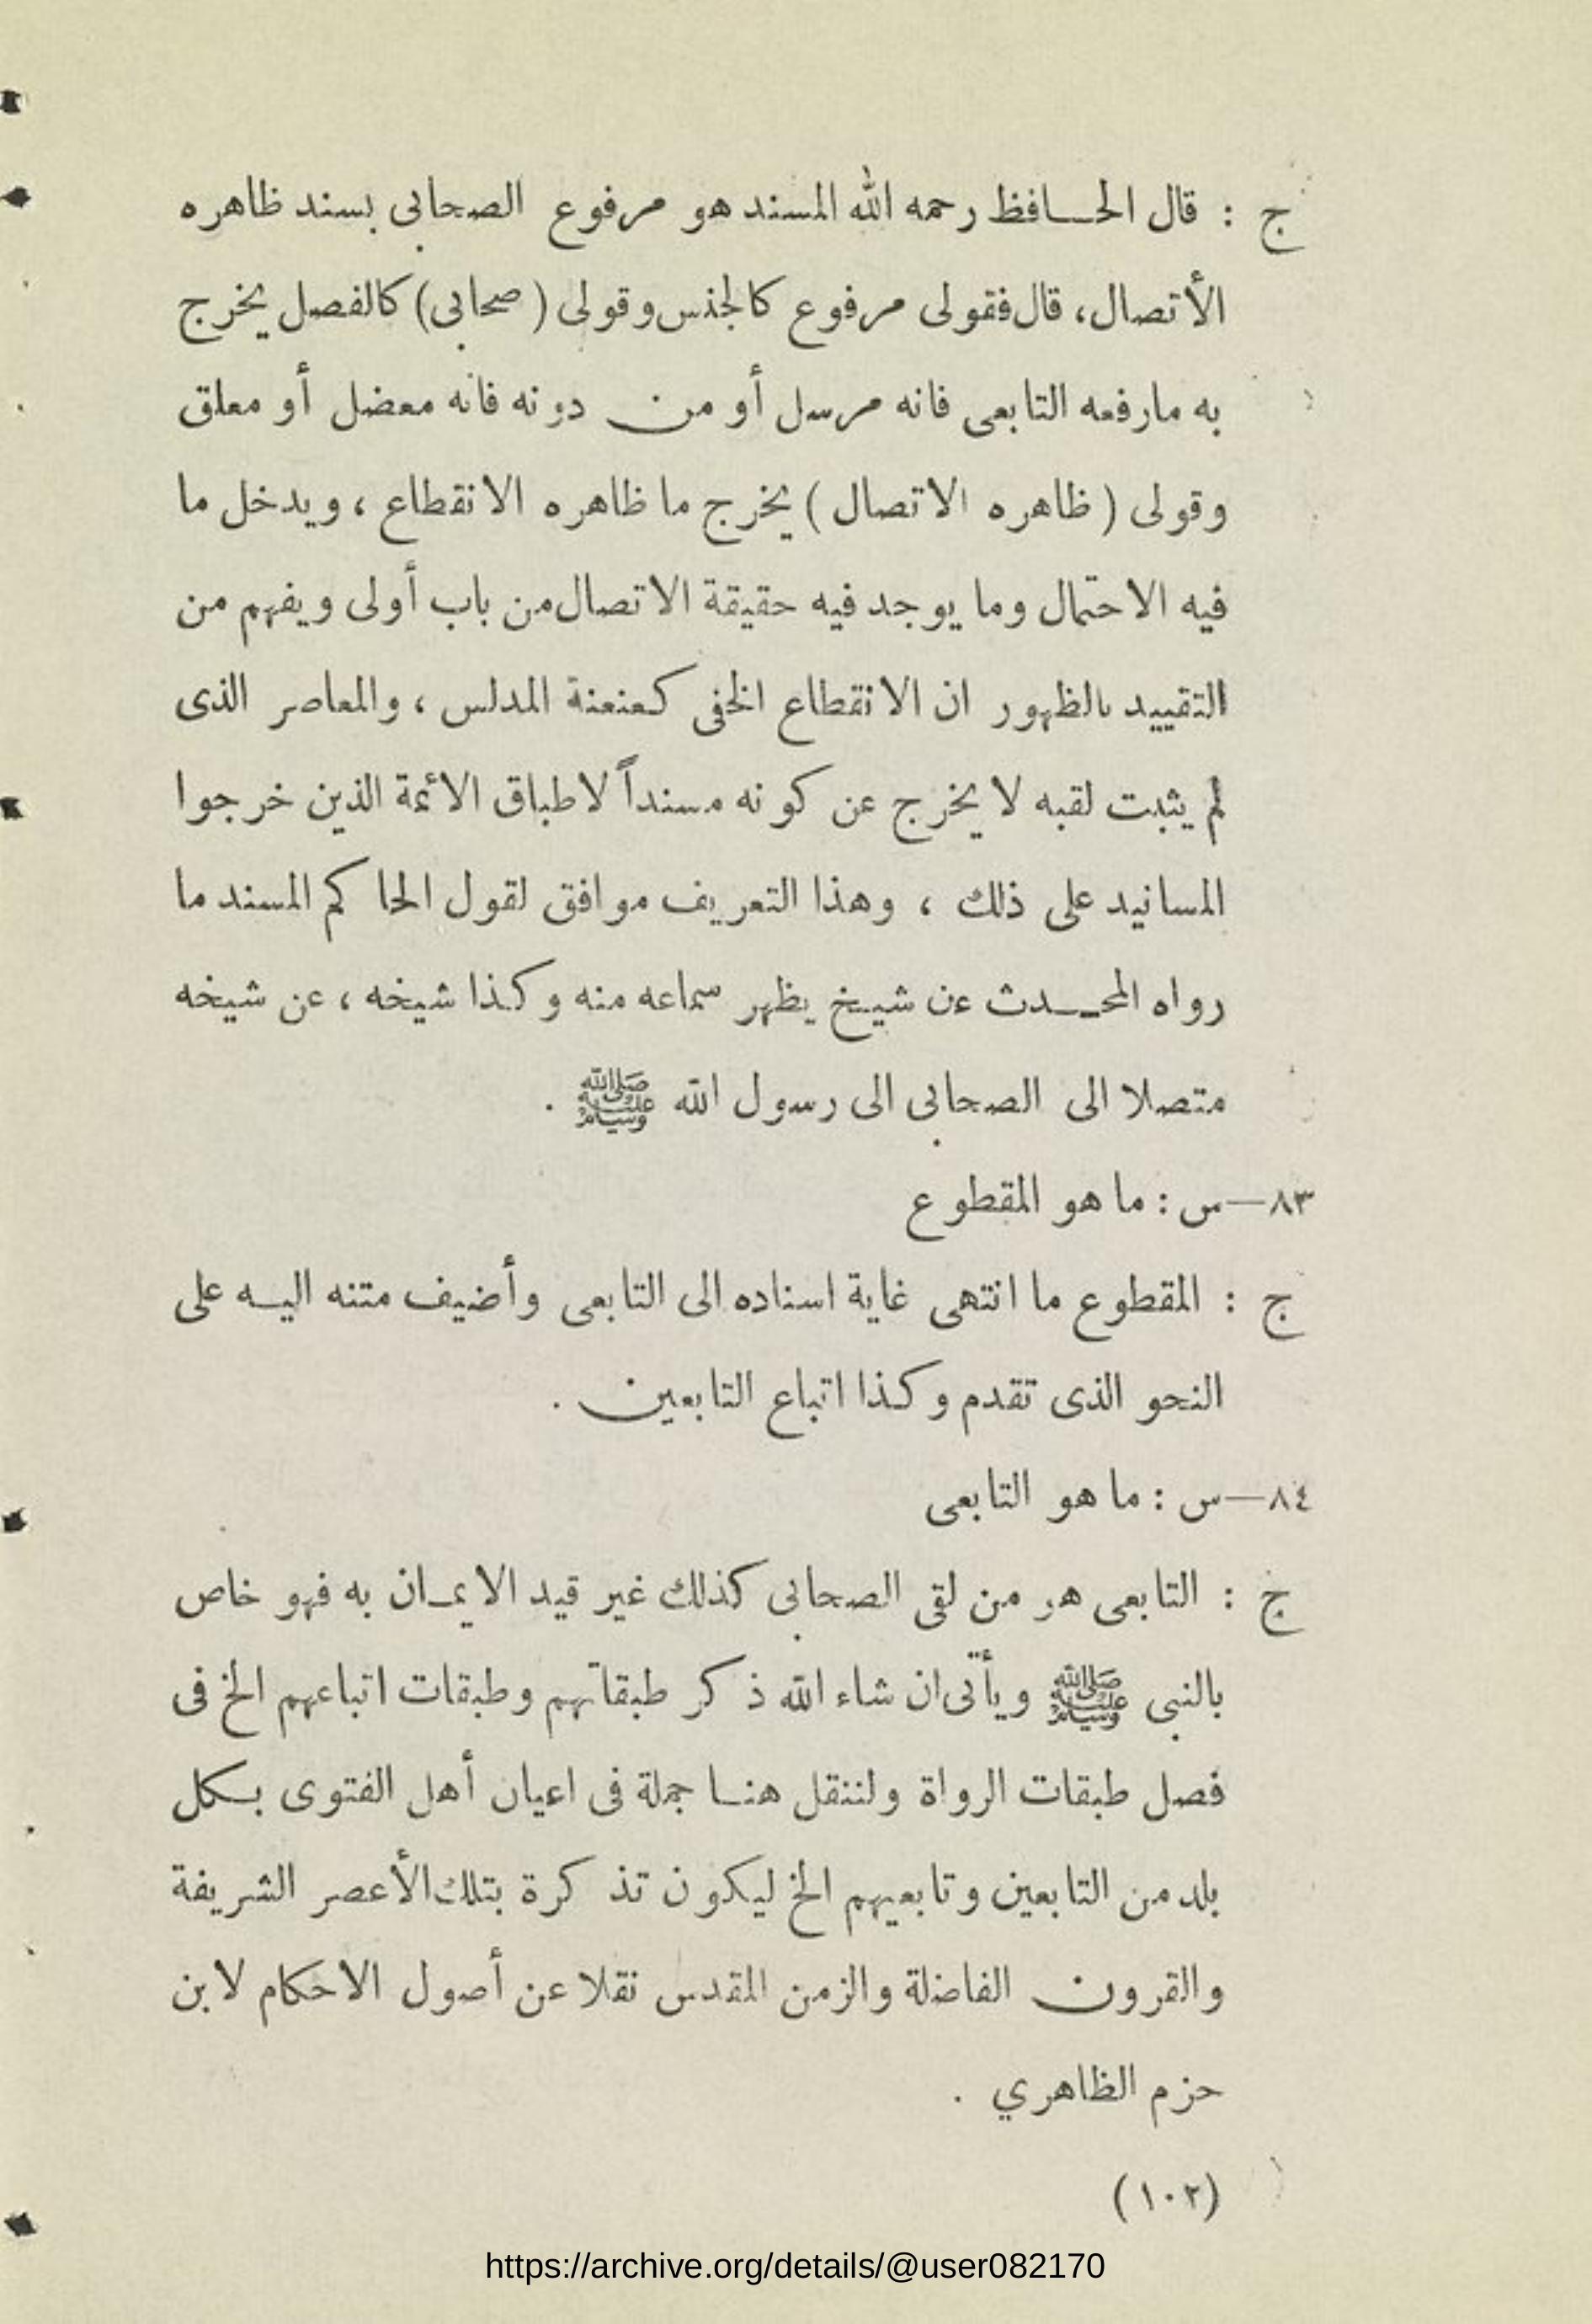 ج : قال الحافظ رحمه الله المسند هو مرفوع الصحابى بسند ظاهره
الأتصال، قال فقولى مرفوع كالجنس وقولى (صحابى) كالفصل يخرج
به مارفعه التابعى فانه مرسل أو من دونه فانه معضل أو معلق
وقولى (ظاهره الاتصال) يخرج ما ظاهره الانقطاع ، ويدخل ما
فيه الاحتمال وما يوجد فيه حقيقة الاتصال من باب أولى ويفهم من
التقييد بالظهور ان الانقطاع الخفى كعنعنة المدلس ، والمعاصر الذى
لم يثبت لقبه لا يخرج عن كونه مسنداً لاطباق الائمة الذين خرجوا
المسانيد على ذلك ، وهذا التعريف موافق لقول الحاكم المسند ما
رواه المحدث عن شيخ يظهر سماعه منه وكذا شيخه ، عن شيخه
متصلا الى الصحابى الى رسول الله ﷺ .
٨٣—س : ما هو المقطوع
ج : المقطوع ما انتهى غاية اسناده الى التابعى وأضيف متنه اليه على
النحو الذى تقدم وكذا اتباع التابعين .
٨٤—س : ما هو التابعى
ج : التابعى هر من لقى الصحابى كذلك غير قيد الايمان به فهو خاص
بالنبى ﷺ ويأتى ان شاء الله ذكر طبقاتهم وطبقات اتباعهم الخ فى
فصل طبقات الرواة ولننقل هنا جملة فى اعيان أهل الفتوى بكل
بلد من التابعين وتابعيهم الخ ليكون تذكرة بتلك الأعصر الشريفة
والقرون الفاضلة والزمن المقدس نقلا عن أصول الاحكام لابن
حزم الظاهري .
(١٠٢)
https://archive.org/details/@user082170